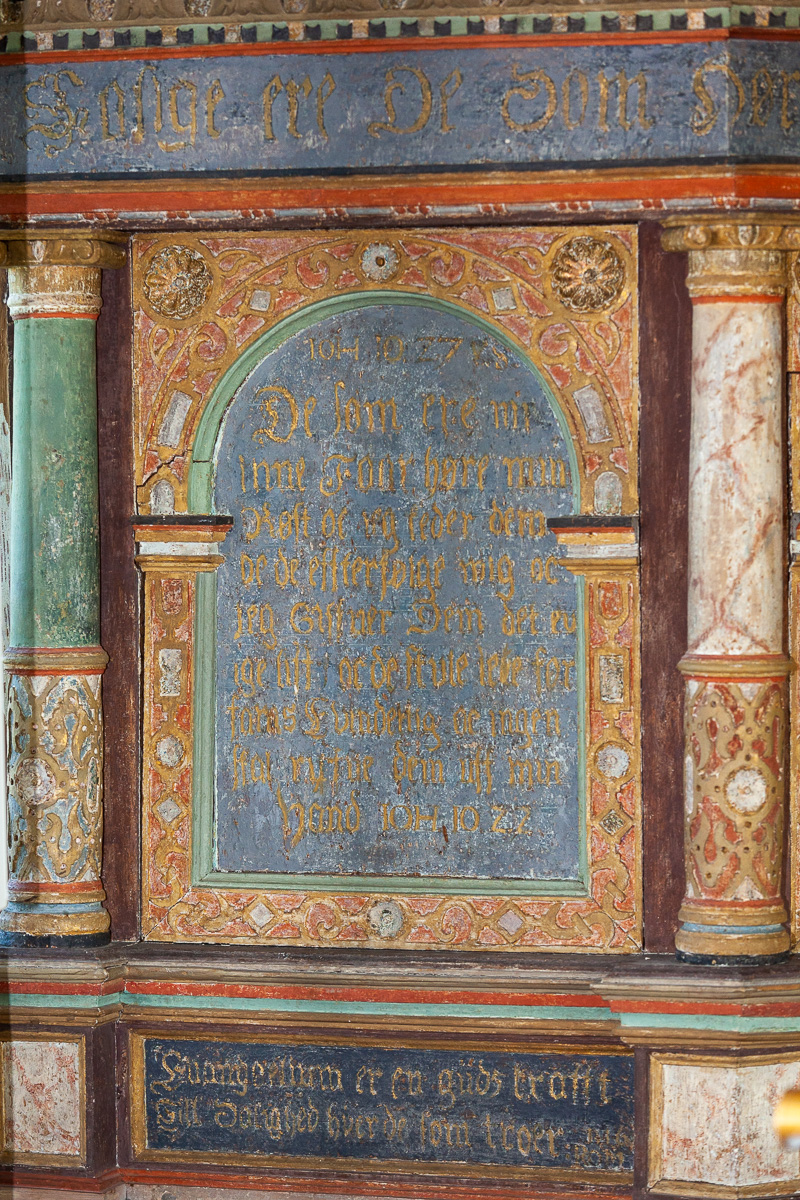 Salige ere De Som Hør
IOH 10 27 28
De som ere mi
inne Faar høre min
Røst oc ieg leder dem
oc de effterfølge mig oc
Jeg Giffuer Dem det eu
ige liff oc de skule icke for
tabis Euindelig oc ingen
skal rycke dem uff min
Hand IOH 10 27
Euangelium er en guds krafft
Till Salighed huer de som troer